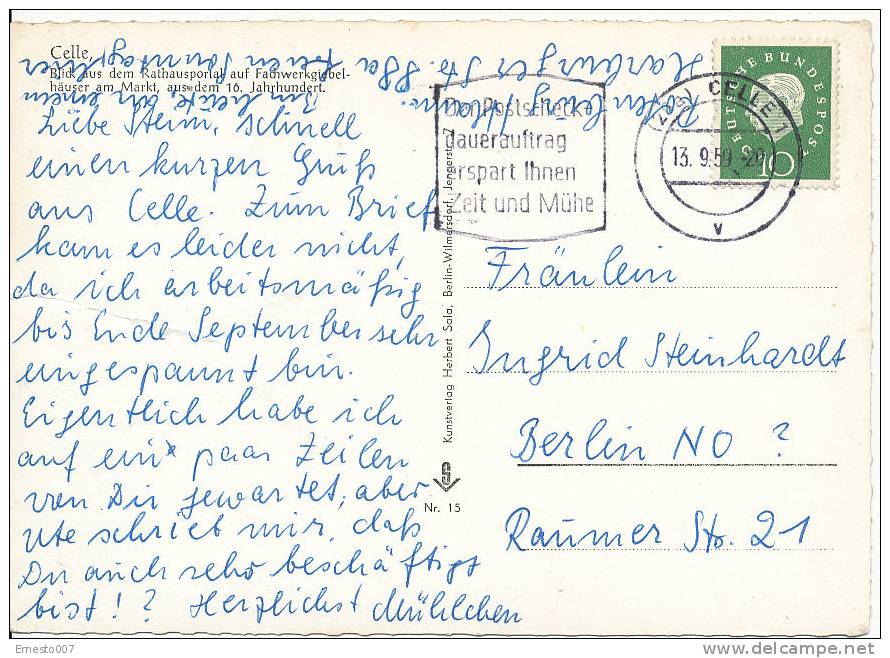 Celle,
Blick aus dem Rathausportal auf Fachwerkgiebel-
häuser am Markt, aus dem 16. Jahrhundert.
Liebe Steini, schnell
einen kurzen Gruß
aus Celle. Zum Brief
kam es leider nicht,
da ich arbeitsmäßig
bis Ende September sehr
eingespannt bin.
Eigentlich habe ich
auf ein paar Zeilen
von Dir gewartet, aber
Ute schrieb mir, daß
Du auch sehr beschäftigt
bist! ? Herzlichst Mühlchen
Bin heute, an einem
freien Sonntag, hier
Harburger Str. 88a
Kunstverlag Herbert Sala, Berlin-Wilmersdorf, Jengerstr. 7
Nr. 15
Der Postscheck-
dauerauftrag
erspart Ihnen
Zeit und Mühe
CELLE 1
13. 9. 59 - 20
v
DEUTSCHE BUNDESPOST
10
Fräulein
Ingrid Steinhardt
Berlin NO ?
Raumer Str. 21
Ernesto007
delcampe.net